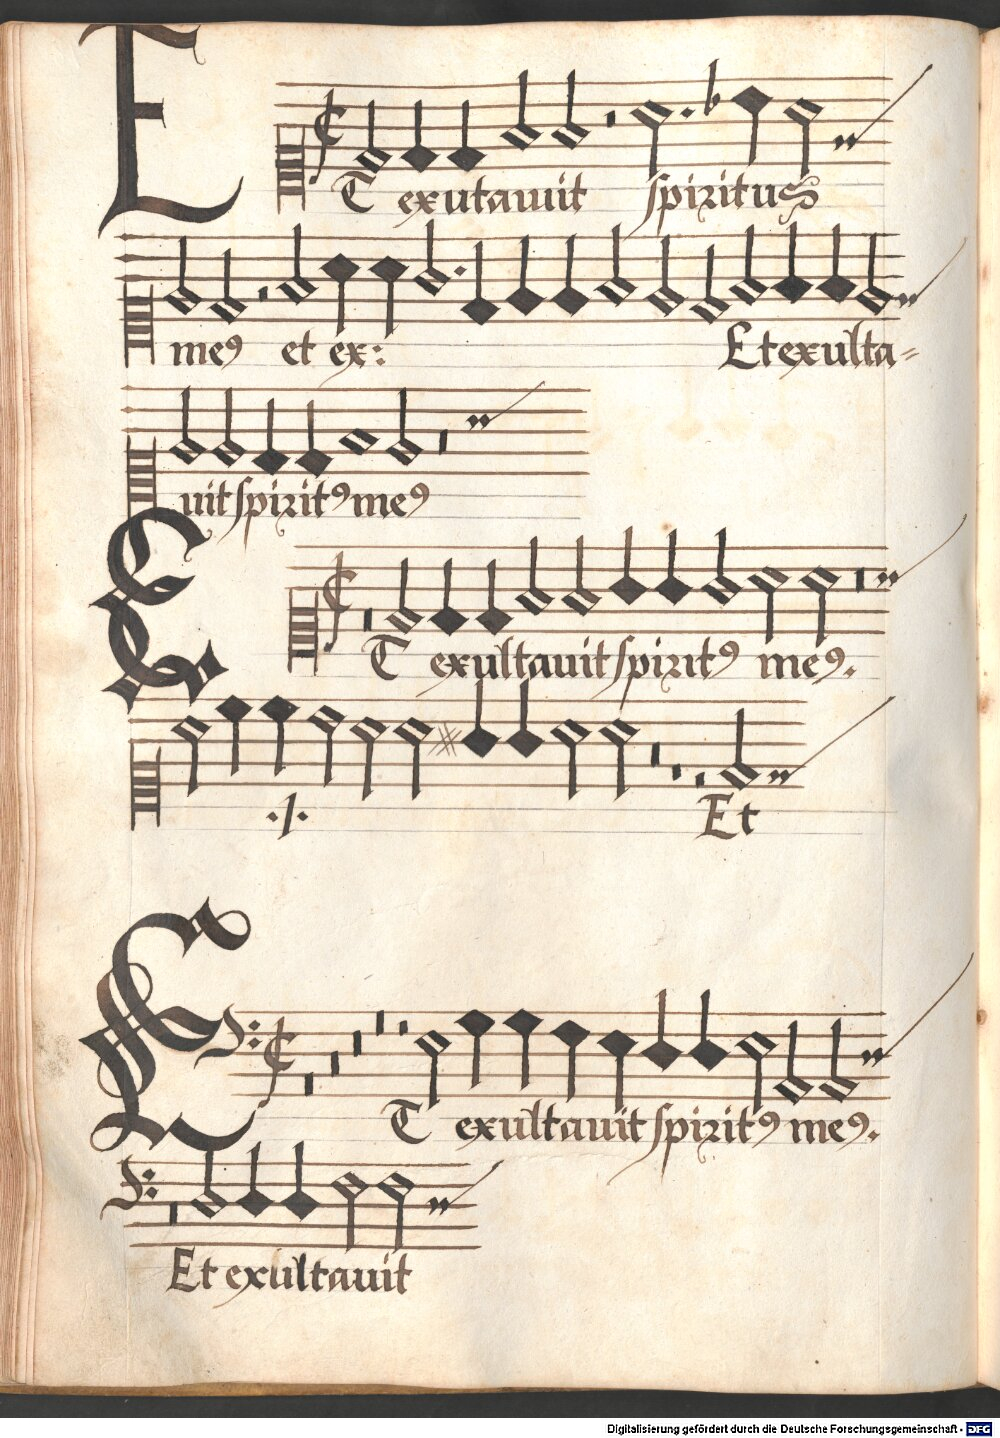 ET exutauit spiritus
meꝰ et ex: Et exulta=
uit spiritꝰ meꝰ
ET exultauit spiritꝰ meꝰ.
./. Et
ET exultauit spiritꝰ meꝰ.
Et exultauit
Digitalisierung gefördert durch die Deutsche Forschungsgemeinschaft - DFG